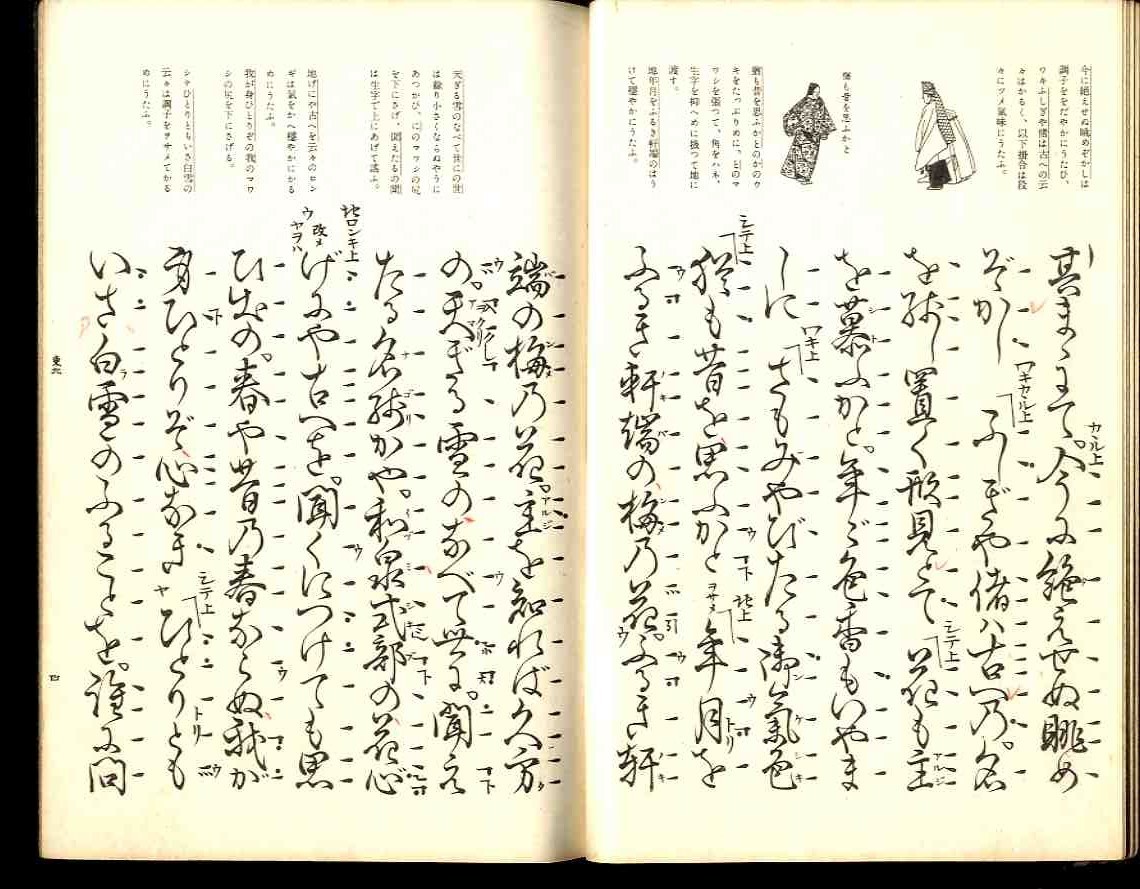 今に絶えせぬ眺めぞかしは
調子をおだやかにうたひ、
ワキふしぎや偖は古への云
々はかるく、以下掛合は段
々にツメ氣味にうたふ。
猶も昔を思ふかと
猶も昔を思ふかとのかのウ
キをたつぷりめに、とのマ
ワシを張つて、角をハネ、
生字を抑へめに扱つて地に
渡す。
地年月をふるき軒端のはう
けて穩やかにうたふ。
カヽル上
其まゝにて、今に絶えせぬ眺め
ぞかし
ワキカヽル上
ふしぎや偖ハ古への、名
を殘し置く形見とて
シテ上
花も主
を慕ふかと、年ど色香もいやま
しに
ワキ上
さもみやびたる御氣色
シテ上
猶も昔を思ふかと
地上
年月を
ふるき軒端の梅乃花、ふるき軒
天ぎる雪のなべて世にの世
は餘り小さくならぬやうに
あつかひ、にのマワシの尻
を下にさげ、聞えたるの聞
は生字で上にあげて謠ふ。
地げにや古へを云々のロン
ギは氣をかへ穩やかにかる
めにうたふ。
我が身ひとりぞの我のマワ
シの尻を下にさげる。
シテひとりともいさ白雪の
云々は調子をヲサメてかる
めにうたふ。
端の梅乃花、主を知れば久方
の、天ぎる雪のなべて世に、聞え
たる名殘かや、和泉式部の花心
地ロンキ上
げにや古へを、聞くにつけても思
ひ出の、春や昔乃春ならぬ我が
身ひとりぞ心なき
シテ上
ひとりとも
いさ白雪のふることを、誰に問
東北
四